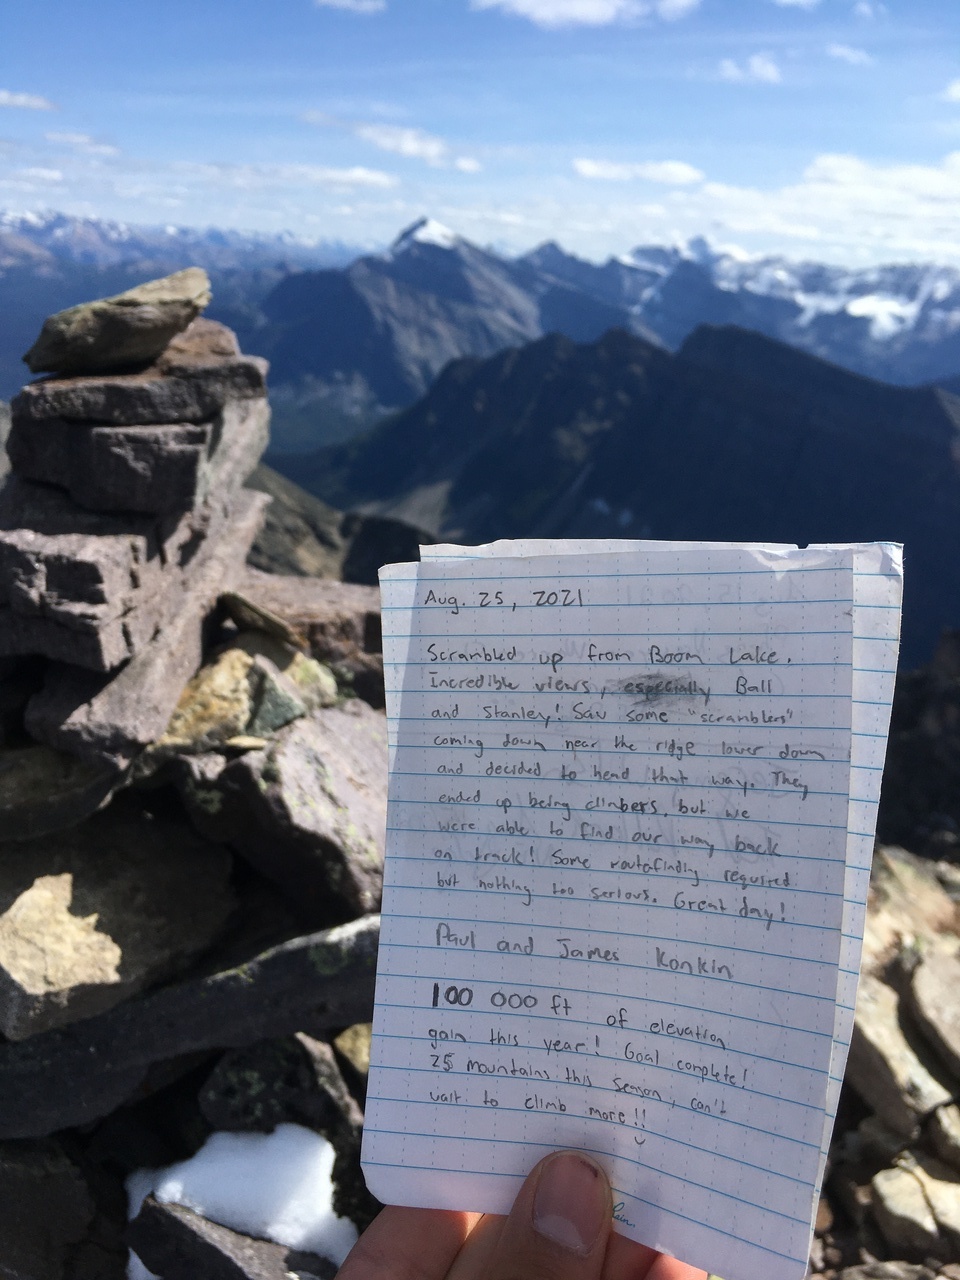 Aug. 25, 2021
Scrambled up from Boom Lake.
Incredible views, especially Ball
and Stanley! Saw some "scramblers"
coming down near the ridge lower down
and decided to head that way. They
ended up being climbers, but we
were able to find our way back
on track! Some routefinding required
but nothing too serious. Great day!
Paul and James Konkin
100 000 ft of elevation
gain this year! Goal complete!
25 mountains this season, can't
wait to climb more!!